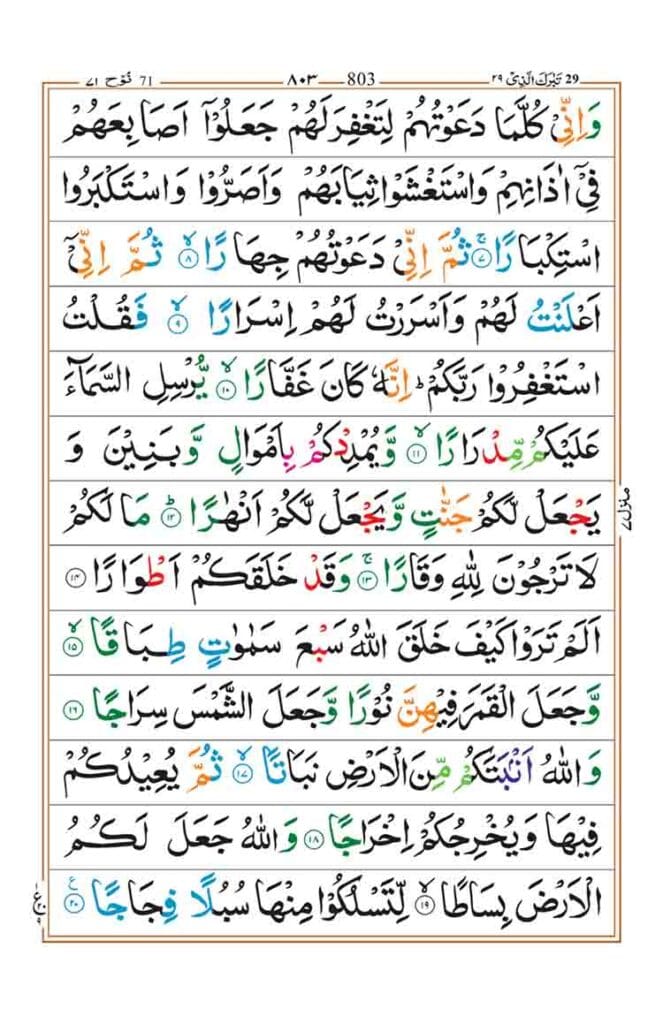 29 تَبٰرَكَ الَّذِیْ ٢٩
803 ٨٠٣
71 نُوْح ٧١
وَاِنِّیْ كُلَّمَا دَعَوْتُهُمْ لِتَغْفِرَ لَهُمْ جَعَلُوْۤا اَصَابِعَهُمْ
فِیْۤ اٰذَانِهِمْ وَاسْتَغْشَوْا ثِیَابَهُمْ وَاَصَرُّوْا وَاسْتَكْبَرُوا
اسْتِكْبَارًا ۚ‏﴿٧﴾ ثُمَّ اِنِّیْ دَعَوْتُهُمْ جِهَارًا ۙ﴿٨﴾ ثُمَّ اِنِّیْۤ
اَعْلَنْتُ لَهُمْ وَاَسْرَرْتُ لَهُمْ اِسْرَارًا ۙ﴿٩﴾ فَقُلْتُ
اسْتَغْفِرُوْا رَبَّكُمْ ؕ اِنَّهٗ كَانَ غَفَّارًا ۙ﴿١٠﴾ یُّرْسِلِ السَّمَآءَ
عَلَیْكُمْ مِّدْرَارًا ۙ﴿١١﴾ وَّیُمْدِدْكُمْ بِاَمْوَالٍ وَّبَنِیْنَ وَ
یَجْعَلْ لَّكُمْ جَنّٰتٍ وَّیَجْعَلْ لَّكُمْ اَنْهٰرًا ؕ﴿١٢﴾ مَا لَكُمْ
لَا تَرْجُوْنَ لِلّٰهِ وَقَارًا ۚ﴿١٣﴾ وَقَدْ خَلَقَكُمْ اَطْوَارًا ﴿١٤﴾
اَلَمْ تَرَوْا كَیْفَ خَلَقَ اللّٰهُ سَبْعَ سَمٰوٰتٍ طِبَاقًا ۙ﴿١٥﴾
وَّجَعَلَ الْقَمَرَ فِیْهِنَّ نُوْرًا وَّجَعَلَ الشَّمْسَ سِرَاجًا ﴿١٦﴾
وَاللّٰهُ اَنْۢبَتَكُمْ مِّنَ الْاَرْضِ نَبَاتًا ۙ﴿١٧﴾ ثُمَّ یُعِیْدُكُمْ
فِیْهَا وَیُخْرِجُكُمْ اِخْرَاجًا ﴿١٨﴾ وَاللّٰهُ جَعَلَ لَكُمُ
الْاَرْضَ بِسَاطًا ۙ﴿١٩﴾ لِّتَسْلُكُوْا مِنْهَا سُبُلًا فِجَاجًا ۧ﴿٢٠﴾
منزل ٧